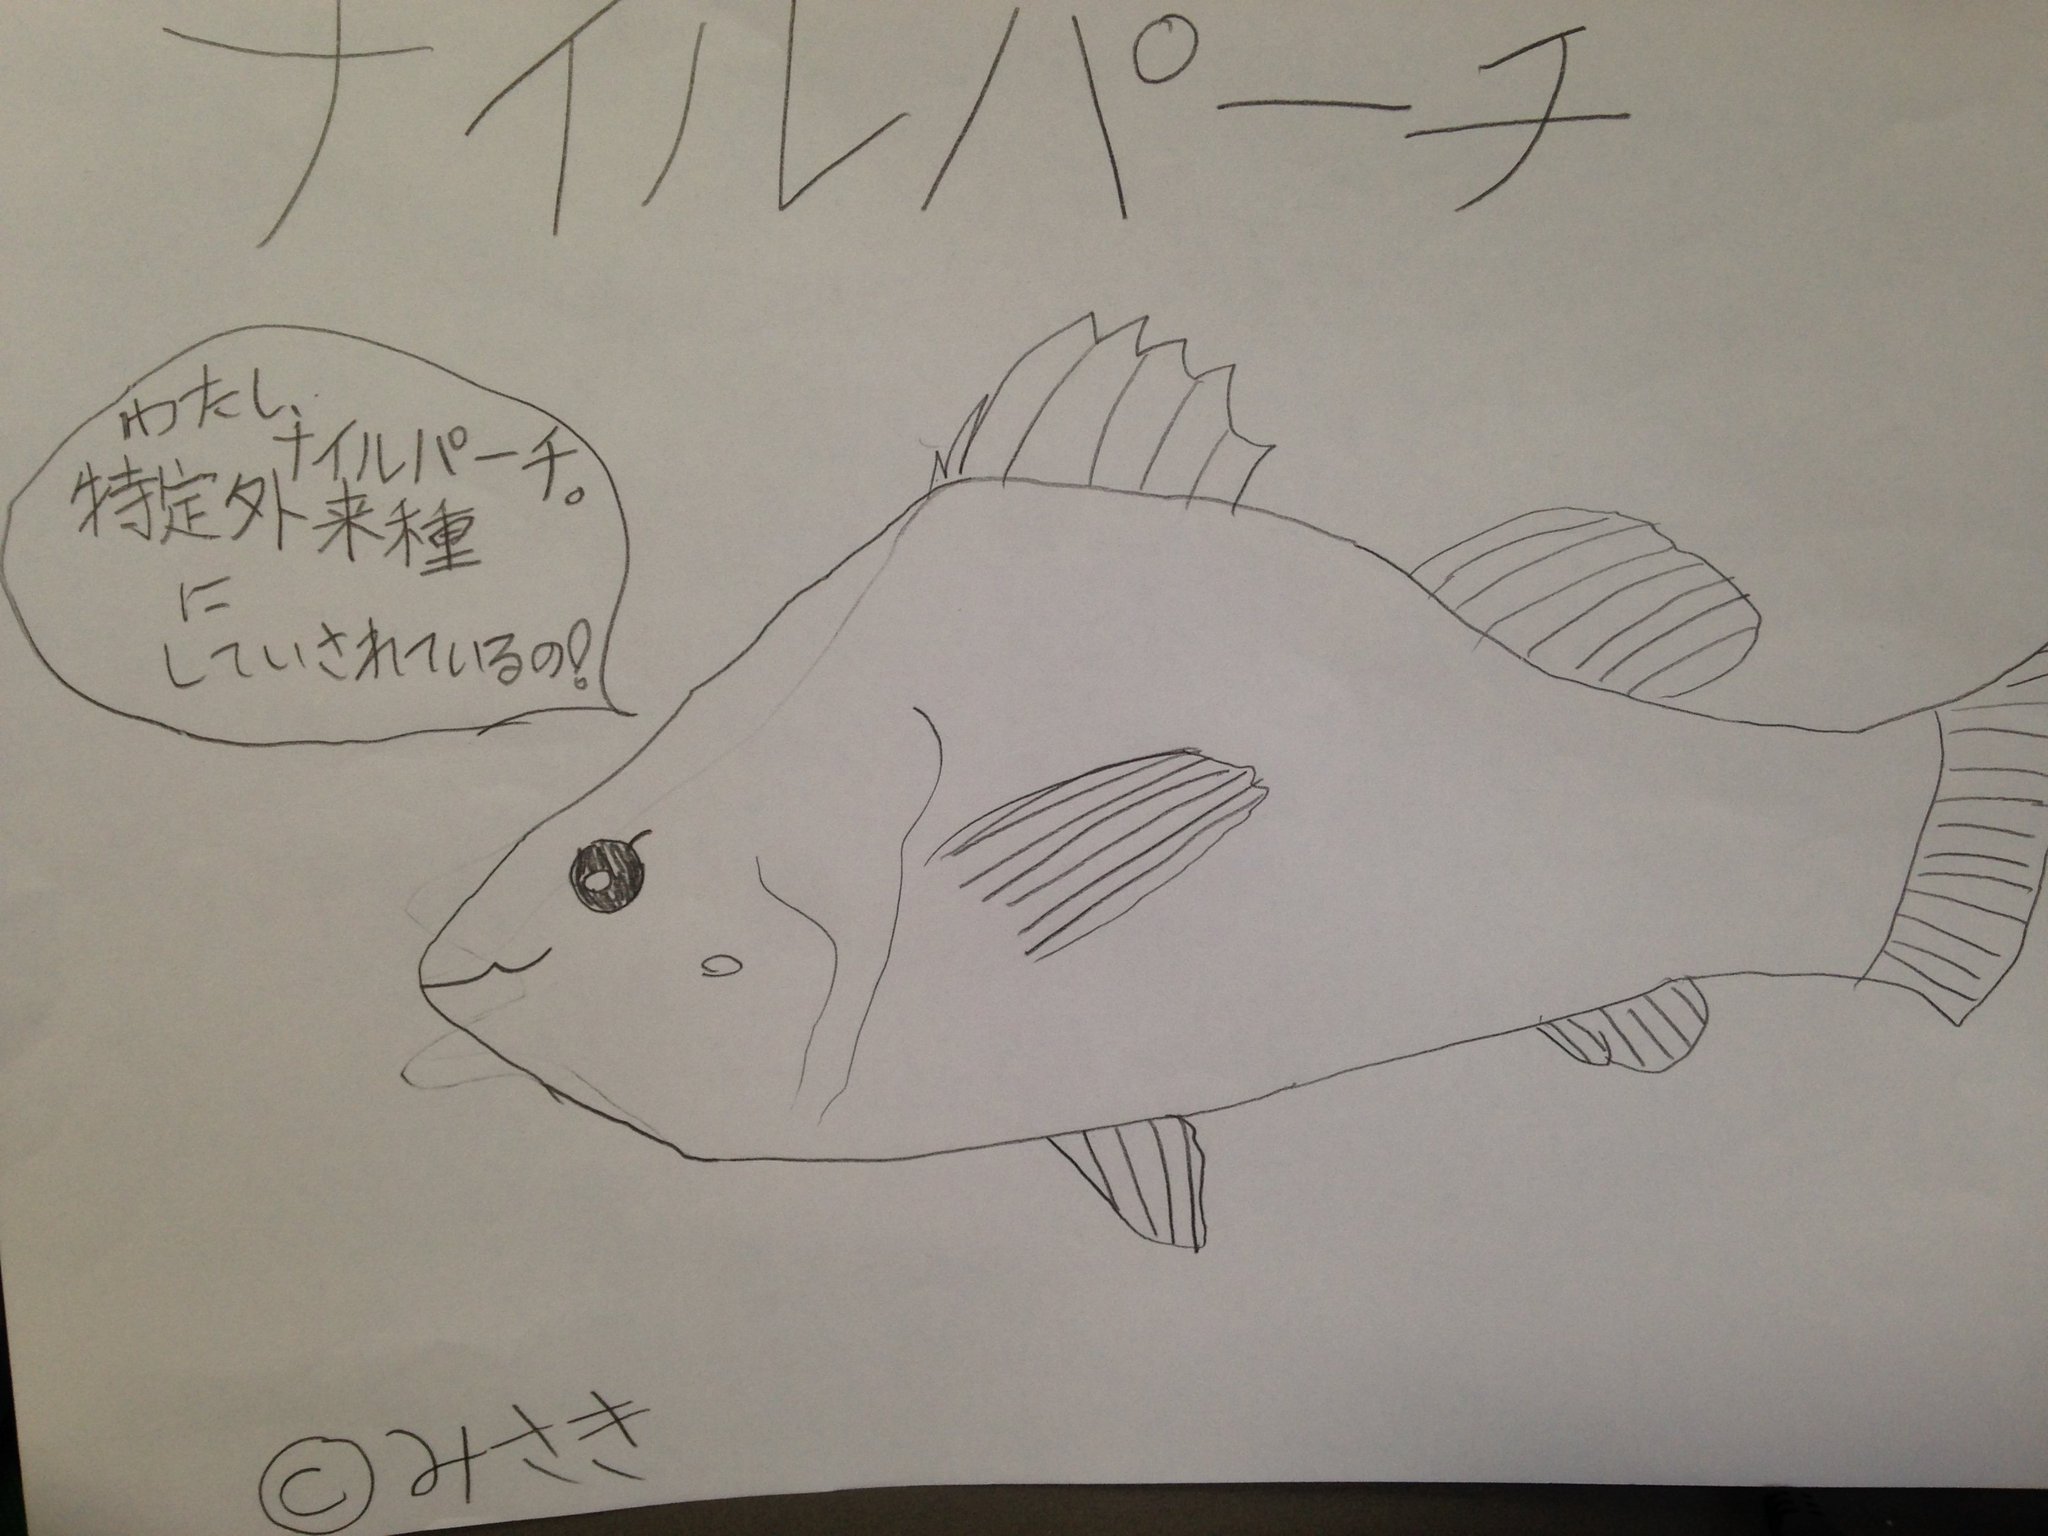 ナイルパーチ
わたし、
ナイルパーチ。
特定外来種
に
していされているの!
©みさき